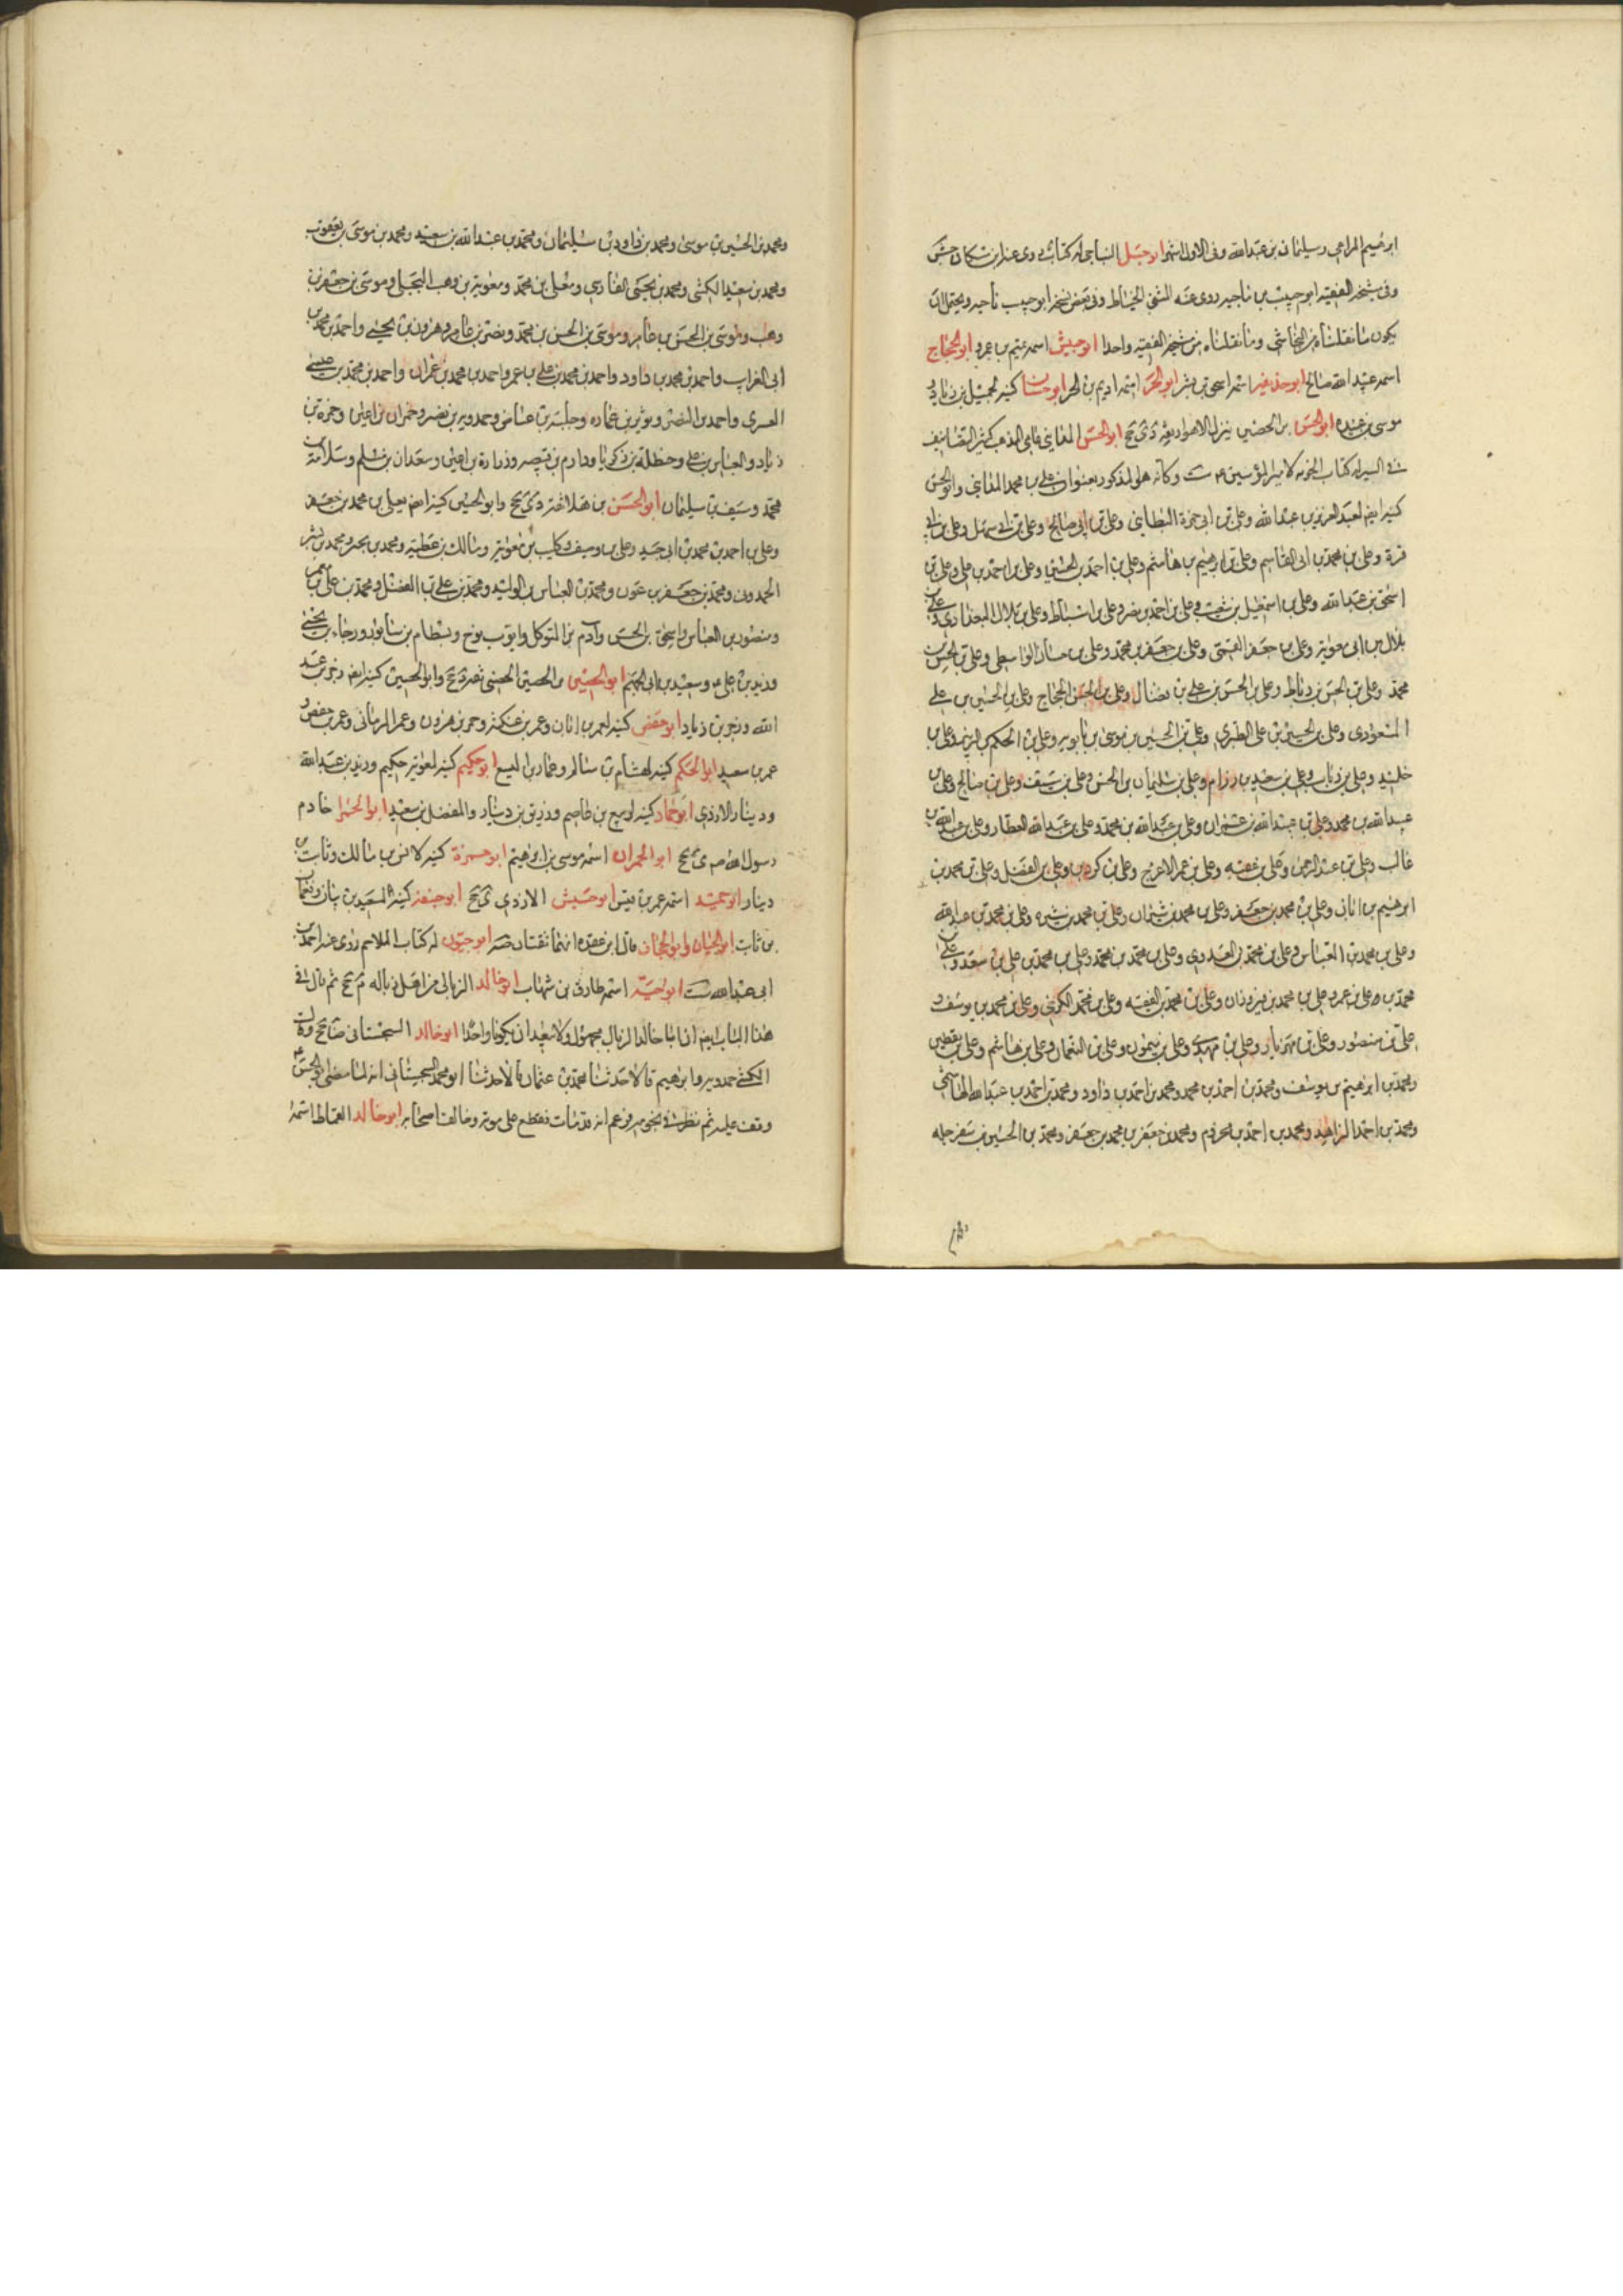 ابرهيم المرامى وسليمان بن عبدالله وفى الاول اشهر ابو جبل له كتاب روى عنه
وفى شيخه الفقيه ابو حبيب بن ناجيه روى عنه المثنى الخياط وفى بعض نسخه ابو حبيب ناجيه ويحتمل ان
يكون ما نقلناه من النجاشى وما نقلناه من شيخه الفقيه واحدا ابو حبيش اسمه بن عمرو ابو الحجاج
اسمه عبيد الله صالح ابو حذيفه اسمه اسحق بن بشر ابو الحر اسمه اديم بن الحر ابو حسان كنيه لجميل بن زياد و
موسى بن عبيده ابو الحسن بن الحصين ينزل الاهواز ثقة دى جخ ابو الحسن المداينى عامى المذهب كثير التصانيف
فى السير له كتاب الخونه لامير المؤمنين ع ست وكانه هو المذكور بعنوان على بن محمد المداينى وابو الحسن
كنيه ايضا لعبد العزيز بن عبد الله وعلى بن ابى حمزة البطاينى وعلى بن ابى صالح وعلى بن ابى سهل وعلى بن ابى
قرة وعلى بن محمد بن ابى القاسم وعلى بن ابرهيم بن هاشم وعلى بن احمد بن الحسين وعلى بن احمد بن على وعلى بن
اسحق بن عبد الله وعلى بن اسمعيل بن شعيب وعلى بن احمد بن نصر وعلى بن اسباط وعلى بن بلال البغدادى وعلى بن
بلال بن ابى معوية وعلى بن جعفر وعلى بن جعفر بن محمد وعلى بن حسان الواسطى وعلى بن الحسن بن
محمد وعلى بن الحسن بن رباط وعلى بن الحسن بن على بن فضال وعلى بن الحسن الحجاج وعلى بن الحسين بن على
المسعودى وعلى بن الحسين بن على الطبرى وعلى بن الحسين بن موسى بن بابويه وعلى بن الحكم بن الزبير وعلى بن
خليد وعلى بن رباب وعلى بن سعيد بن رزام وعلى بن سليمان بن الحسن وعلى بن سيف وعلى بن صالح وعلى بن
عبد الله بن محمد وعلى بن عبد الله بن عمران وعلى بن عبد الله بن محمد وعلى بن عبد الله العطار وعلى بن عبد الله بن
غالب وعلى بن عبد الرحمن وعلى بن عقبه وعلى بن عمر الاعرج وعلى بن وعلى بن الفضل وعلى بن محمد بن
ابرهيم بن ابان وعلى بن محمد بن جعفر وعلى بن محمد بن شيران وعلى بن محمد بن شيره وعلى بن محمد بن عبد الله
وعلى بن محمد بن العباس وعلى بن محمد بن العدوى وعلى بن محمد بن محمد وعلى بن محمد بن على بن سعد وعلى بن
محمد بن على بن عمر وعلى بن محمد بن فيروزان وعلى بن محمد بن الفقيه وعلى بن محمد الكرخى وعلى بن محمد بن يوسف و
على بن منصور وعلى بن مهزيار وعلى بن مهدى وعلى بن ميمون وعلى بن النعمان وعلى بن هاشم وعلى بن يقطين
ومحمد بن ابرهيم بن يوسف ومحمد بن احمد بن محمد ومحمد بن احمد بن داود ومحمد بن احمد بن عبد الله الهاشمى
ومحمد بن احمد الزاهد ومحمد بن احمد بن مخزوم ومحمد بن جعفر بن محمد بن جعفر ومحمد بن الحسين بن سفرجله
ومحمد بن الحسين بن موسى ومحمد بن داود بن سليمان ومحمد بن عبد الله بن سعيد ومحمد بن موسى بن يعقوب
ومحمد بن سعيد الكشى ومحمد بن يحيى الفارسى ومعلى بن محمد ومعوية بن وهب البجلى وموسى بن جعفر بن
وهب وموسى بن الحسن بن عامر وموسى بن الحسن بن محمد ونصر بن عامر وهرون بن يحيى واحمد بن محمد بن
ابى الغراب واحمد بن محمد بن داود واحمد بن محمد بن على بن عمر واحمد بن محمد بن عمران واحمد بن محمد بن عيسى
واحمد بن النضر وبن عماره وجلبة بن عياض وحمدويه بن نصر وحمران بن اعين وحمزة بن
زياد والعباس بن على وحنظلة بن زكريا ودارم بن قبيصه وزرارة بن اعين وسعدان بن مسلم وسلامة بن
محمد وسيف بن سليمان ابو الحسن بن هلال ثقه دى جخ وابو الحسين كنيه ايضا لعلى بن محمد بن جعفر
وعلى بن احمد بن محمد بن ابى جيد وعلى بن وصيف وكليب بن معوية ومالك بن عطيه ومحمد بن بحر ومحمد بن بشر
الحمدونى ومحمد بن جعفر بن عون ومحمد بن العباس بن الوليد ومحمد بن على بن الفضل ومحمد بن على بن معمر
ومنصور بن العباس واسحق بن الحسن وآدم بن المتوكل وايوب بن نوح وبسطام بن سابور ورجاء بن يحيى
وزيد بن على ع وسعيد بن ابى الجهم ابو الحسين بن الحصين الحصينى ثقه دى جخ وابو الحصين كنيه ايضا زحر بن عبد
الله وزحر بن زياد ابو حفص كنيه لعمر بن ابان وعمر بن عنكثه وعمر بن هرون وعمر الرمانى وعمر بن حفص و
عمر بن سعيد ابو الحكم كنيه لهشام بن سالم وعمار بن اليسع ابو حكيم كنيه لمعوية حكيم وزيد بن عبد الله
ودينار الازدى ابو حماد كنيه لربيع بن عاصم ورزيق بن دينار والمفضل بن سعيد ابو الحمرا خادم
رسول الله ص ى جخ ابو الحمران اسمه موسى بن ابرهيم ابو حمزة كنيه لانس بن مالك وثابت بن
دينار ابو حميد اسمه عمر بن قيس ابو حنيش الازدى ى جخ ابو حنيفه كنيه لسعيد بن بيان ونعمان
بن ثابت ابو الحيان وابو الحجاف قال ابن عقده انهما ثقتان صه ابو حيون له كتاب الملاحم روى عنه احمد بن
ابى عبد الله ست ابو حيه اسمه طارق بن شهاب ابو خالد الزبالى من اهل زباله م جخ ثم قال فى
هذا الباب ايضا ان ابا خالد الزبالى مجهول ولا يبعد ان يكونا واحدا ابو خالد السجستانى ضا جخ وقال
الكشى حمدويه وابرهيم قالا حدثنا محمد بن عثمان قال حدثنا ابو محمد السجستانى انه لما مضى ابو الحسن ع
وقف عليه ثم نظر فى نجومه فزعم انه قد مات فقطع على موته وخالف اصحابه ابو خالد القماط اسمه